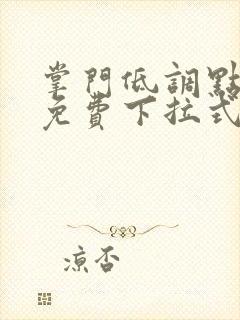 掌門低調點
免費下拉式
凉否